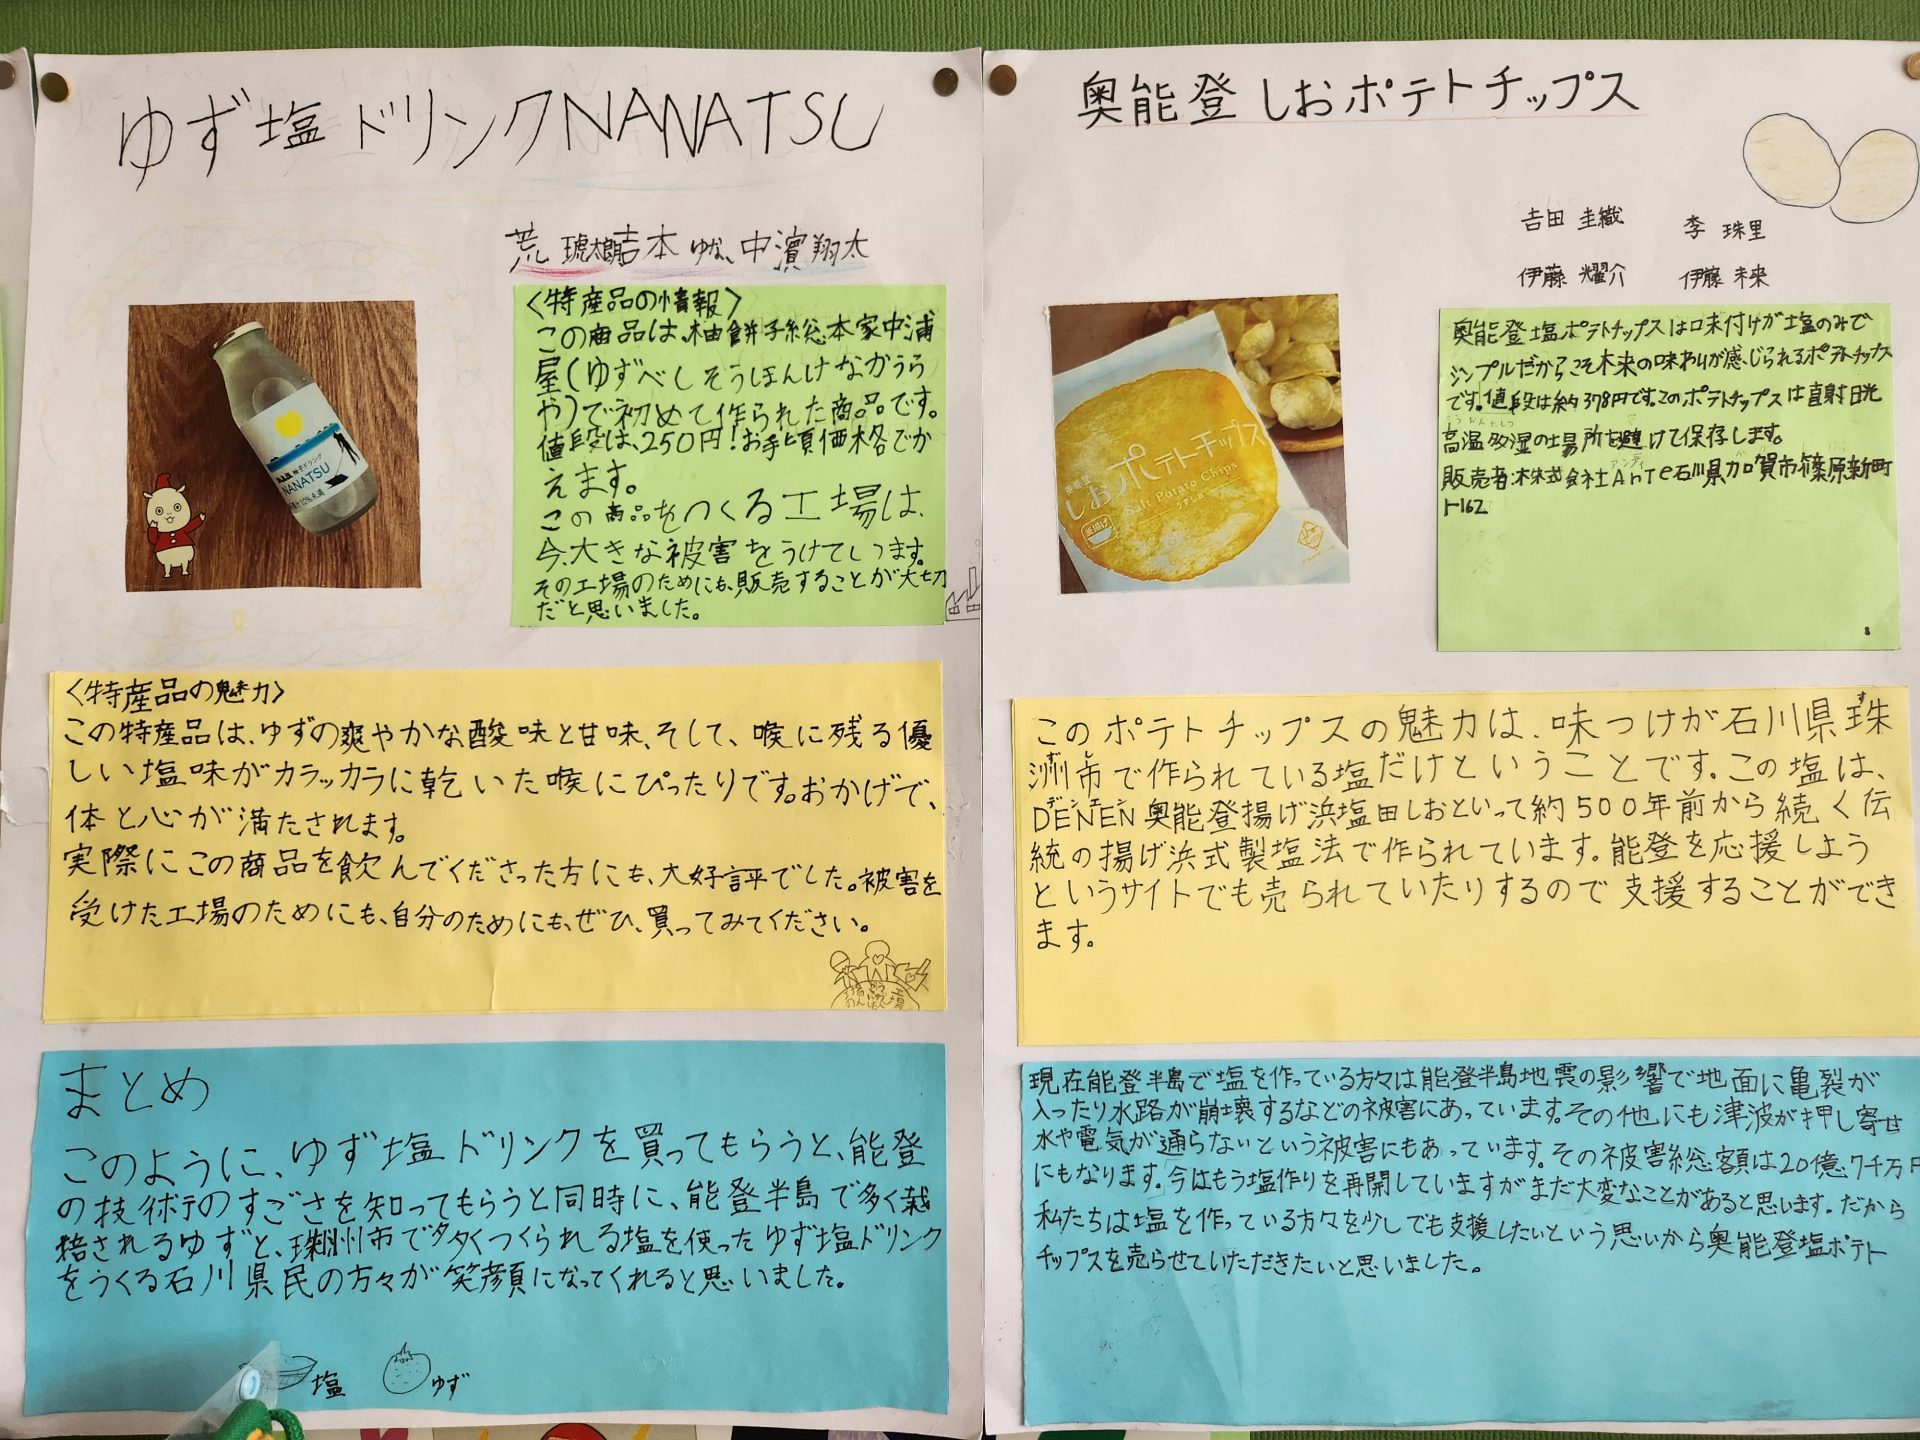 ゆず塩ドリンクNANATSU
荒 琥太郎 吉本 ゆな、中濱 翔太
〈特産品の情報〉
この商品は、柚餅子総本家中浦
屋(ゆずべしそうほんけなかうら
や)で初めて作られた商品です。
値段は、250円!お手頃価格でか
えます。
この商品をつくる工場は、
今、大きな被害をうけています。
その工場のためにも、販売することが大切
だと思いました。
柚子ドリンク
NANATSU
果汁10%未満
〈特産品の魅力〉
この特産品は、ゆずの爽やかな酸味と甘味、そして、喉に残る優
しい塩味がカラッカラに乾いた喉にぴったりです。おかげで、
体と心が満たされます。
実際にこの商品を飲んでくださった方にも、大好評でした。被害を
受けた工場のためにも、自分のためにも、ぜひ、買ってみてください。
まとめ
このように、ゆず塩ドリンクを買ってもらうと、能登
の技術のすごさを知ってもらうと同時に、能登半島で多く栽
培されるゆずと、珠洲市で多くつくられる塩を使ったゆず塩ドリンク
をつくる石川県民の方々が笑顔になってくれると思いました。
塩
ゆず
奥能登しおポテトチップス
吉田 圭織
李 珠里
伊藤 耀介
伊藤 未来
奥能登塩ポテトチップスは味付けが塩のみで
シンプルだからこそ本来の味わいが感じられるポテトチップス
です。値段は約378円です。このポテトチップスは直射日光
高温多湿の場所を避けて保存します。
販売者:株式会社Ante石川県加賀市篠原新町
ト162
アンテ
奥能登
しおポテトチップス
Salt Potato Chips
うすしお
釜揚げ
このポテトチップスの魅力は、味つけが石川県珠
洲市で作られている塩だけということです。この塩は、
DENEN奥能登揚げ浜塩田しおといって約500年前から続く伝
統の揚げ浜式製塩法で作られています。能登を応援しよう
というサイトでも売られていたりするので支援することができ
ます。
す
ず し
デンエン
現在能登半島で塩を作っている方々は能登半島地震の影響で地面に亀裂が
入ったり水路が崩壊するなどの被害にあっています。その他にも津波が押し寄せ
水や電気が通らないという被害にもあっています。その被害総額は20億7千万円
にもなります。今はもう塩作りを再開していますがまだ大変なことがあると思います。だから
私たちは塩を作っている方々を少しでも支援したいという思いから奥能登塩ポテト
チップスを売らせていただきたいと思いました。